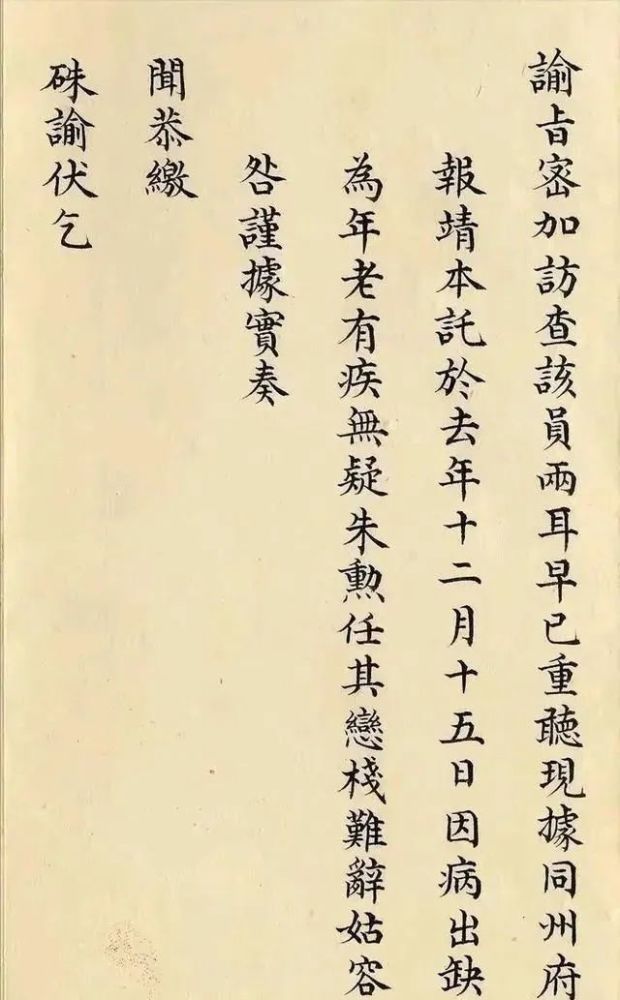 諭旨密加訪查該員兩耳早已重聽現據同州府
報靖本託於去年十二月十五日因病出缺
為年老有疾無疑朱勳任其戀棧難辭姑容
咎謹據實奏
聞恭繳
硃諭伏乞